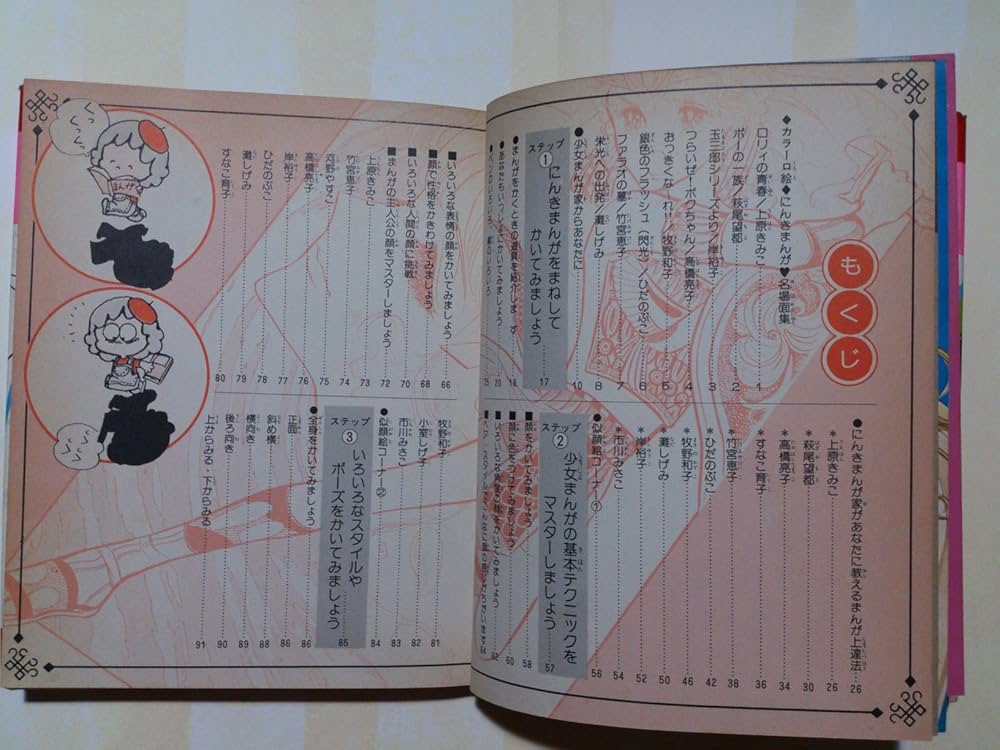 もくじ
◆カラー口絵◆にんきまんが♥名場面集
ロリィの青春/上原きみこ 1
ポーの一族/萩尾望都 2
玉三郎シリーズより/岸裕子 3
つらいぜ!ボクちゃん/高橋亮子 4
おつきくなれ!!/牧野和子 5
銀色のフラッシュ(閃光)/ひだのぶこ 6
ファラオの墓/竹宮恵子 7
栄光への出発/灘しげみ 8
●少女まんが家からあなたに 10
ステップ① にんきまんがをまねして
かいてみましょう 17
●まんがをかくときの道具を紹介しまーす 18
●あなたもいっしょにかいてみましょう 20
25
●にんきまんが家があなたに教えるまんが上達法 26
*上原きみこ 26
*萩尾望都 30
*高橋亮子 34
*すなこ育子 36
*竹宮恵子 38
*ひだのぶこ 42
*牧野和子 46
*灘しげみ 50
*岸裕子 52
*市川みさこ 54
●似顔絵コーナー① 56
ステップ② 少女まんがの基本テクニックを
マスターしましょう 57
■顔をかいてみましょう 58
■顔に色をつけてみましょう 60
■いろいろな角度の顔をかいてみましょう 62
64
■いろいろな表情の顔をかいてみましょう 66
■顔で性格をかきわけてみましょう 68
■いろいろな人間の顔に挑戦 70
■まんがの主人公の顔をマスターしましょう 72
上原きみこ 73
竹宮恵子 74
河野やす子 75
高橋亮子 76
岸裕子 77
ひだのぶこ 78
灘しげみ 79
すなこ育子 80
牧野和子 81
小室しげ子 82
市川みさこ 83
●似顔絵コーナー② 84
ステップ③ いろいろなスタイルや
ポーズをかいてみましょう 85
●全身をかいてみましょう 86
正面 86
斜め横 88
横向き 89
後ろ向き 90
上からみる・下からみる 91
くっくっくっ
まんが